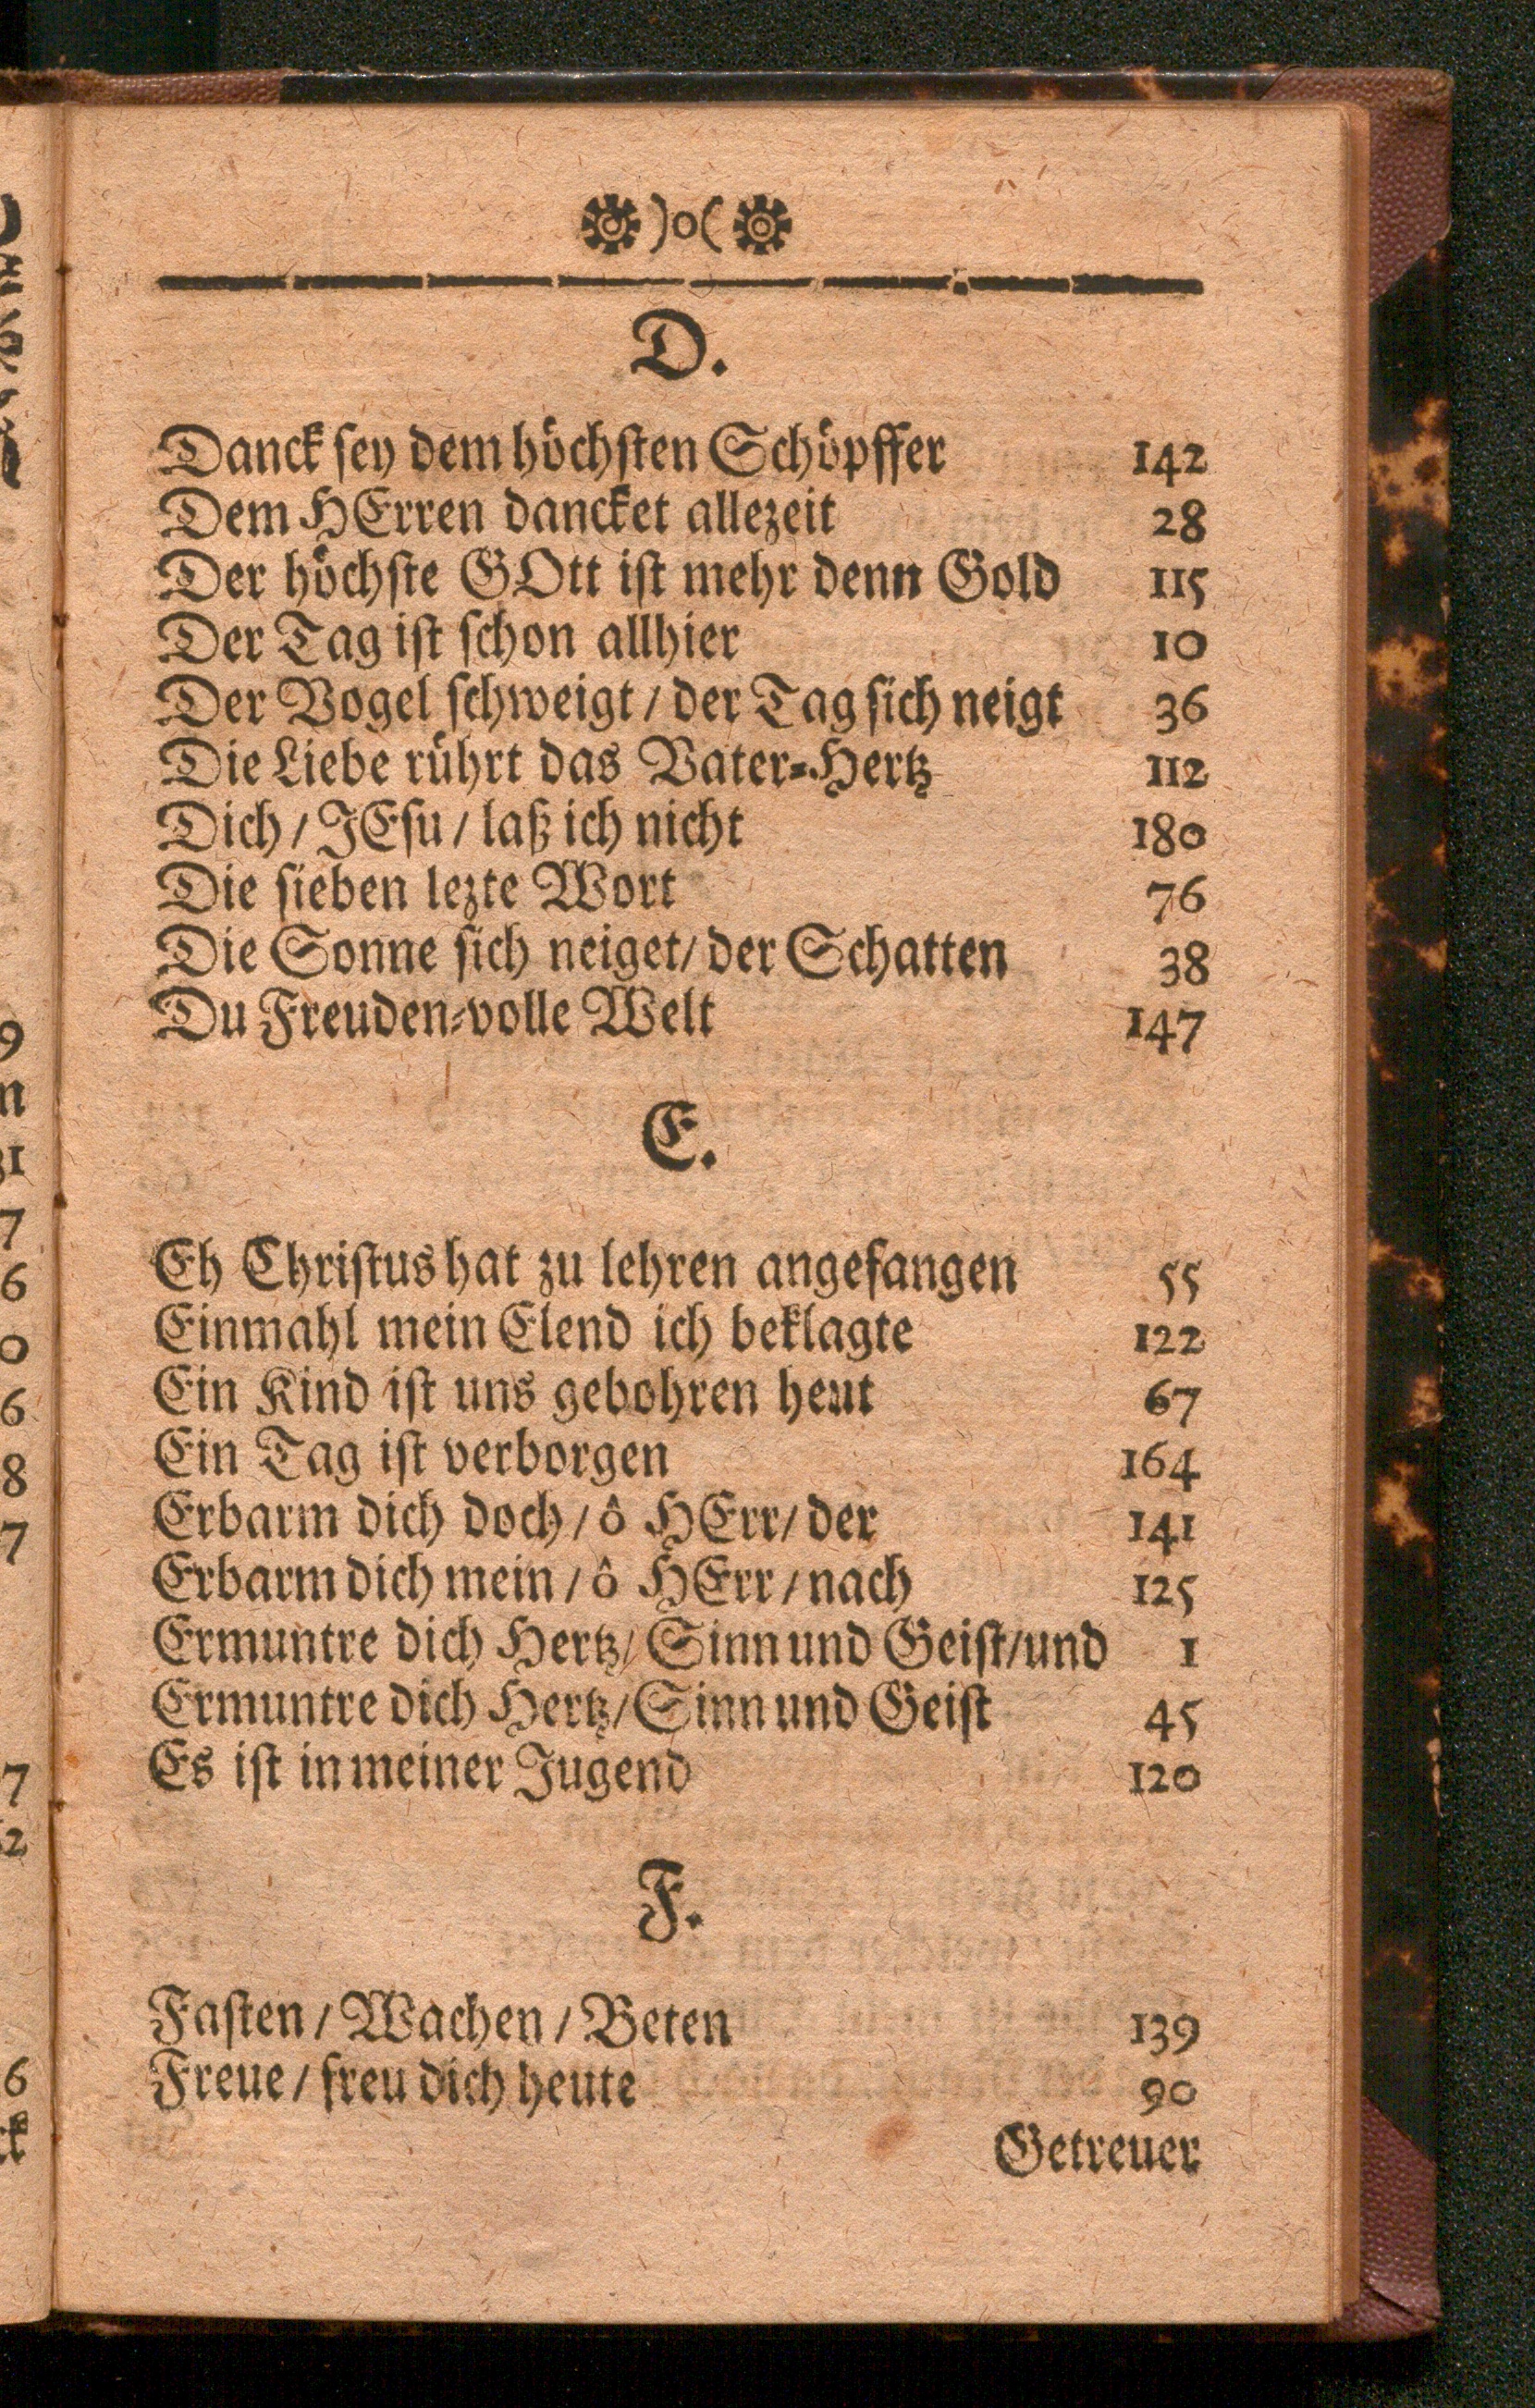 )o(
D.
Danck ſey dem höchſten Schöpffer 142
Dem HErren dancket allezeit 28
Der höchſte GOtt iſt mehr denn Gold 115
Der Tag iſt ſchon allhier 10
Der Vogel ſchweigt / der Tag ſich neigt 36
Die Liebe rührt das Vater-Hertz 112
Dich / JEſu / laß ich nicht 180
Die ſieben lezte Wort 76
Die Sonne ſich neiget/ der Schatten 38
Du Freuden-volle Welt 147
E.
Eh Chriſtus hat zu lehren angefangen 55
Einmahl mein Elend ich beklagte 122
Ein Kind iſt uns gebohren heut 67
Ein Tag iſt verborgen 164
Erbarm dich doch / ô HErr/ der 141
Erbarm dich mein / ô HErr / nach 125
Ermuntre dich Hertz/ Sinn und Geiſt/und 1
Ermuntre dich Hertz/ Sinn und Geiſt 45
Es iſt in meiner Jugend 120
F.
Faſten / Wachen / Beten 139
Freue / freu dich heute 90
Getreuer